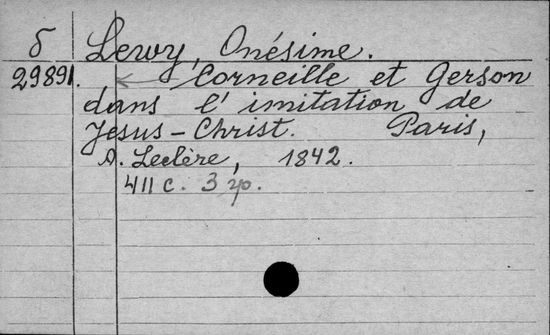 б Lewy, Onésime.
29891. Corneille et Gerson
dans l'imitation de
Jesus-Christ. Paris,
A. Leclère, 1842.
411 c. 3 р.